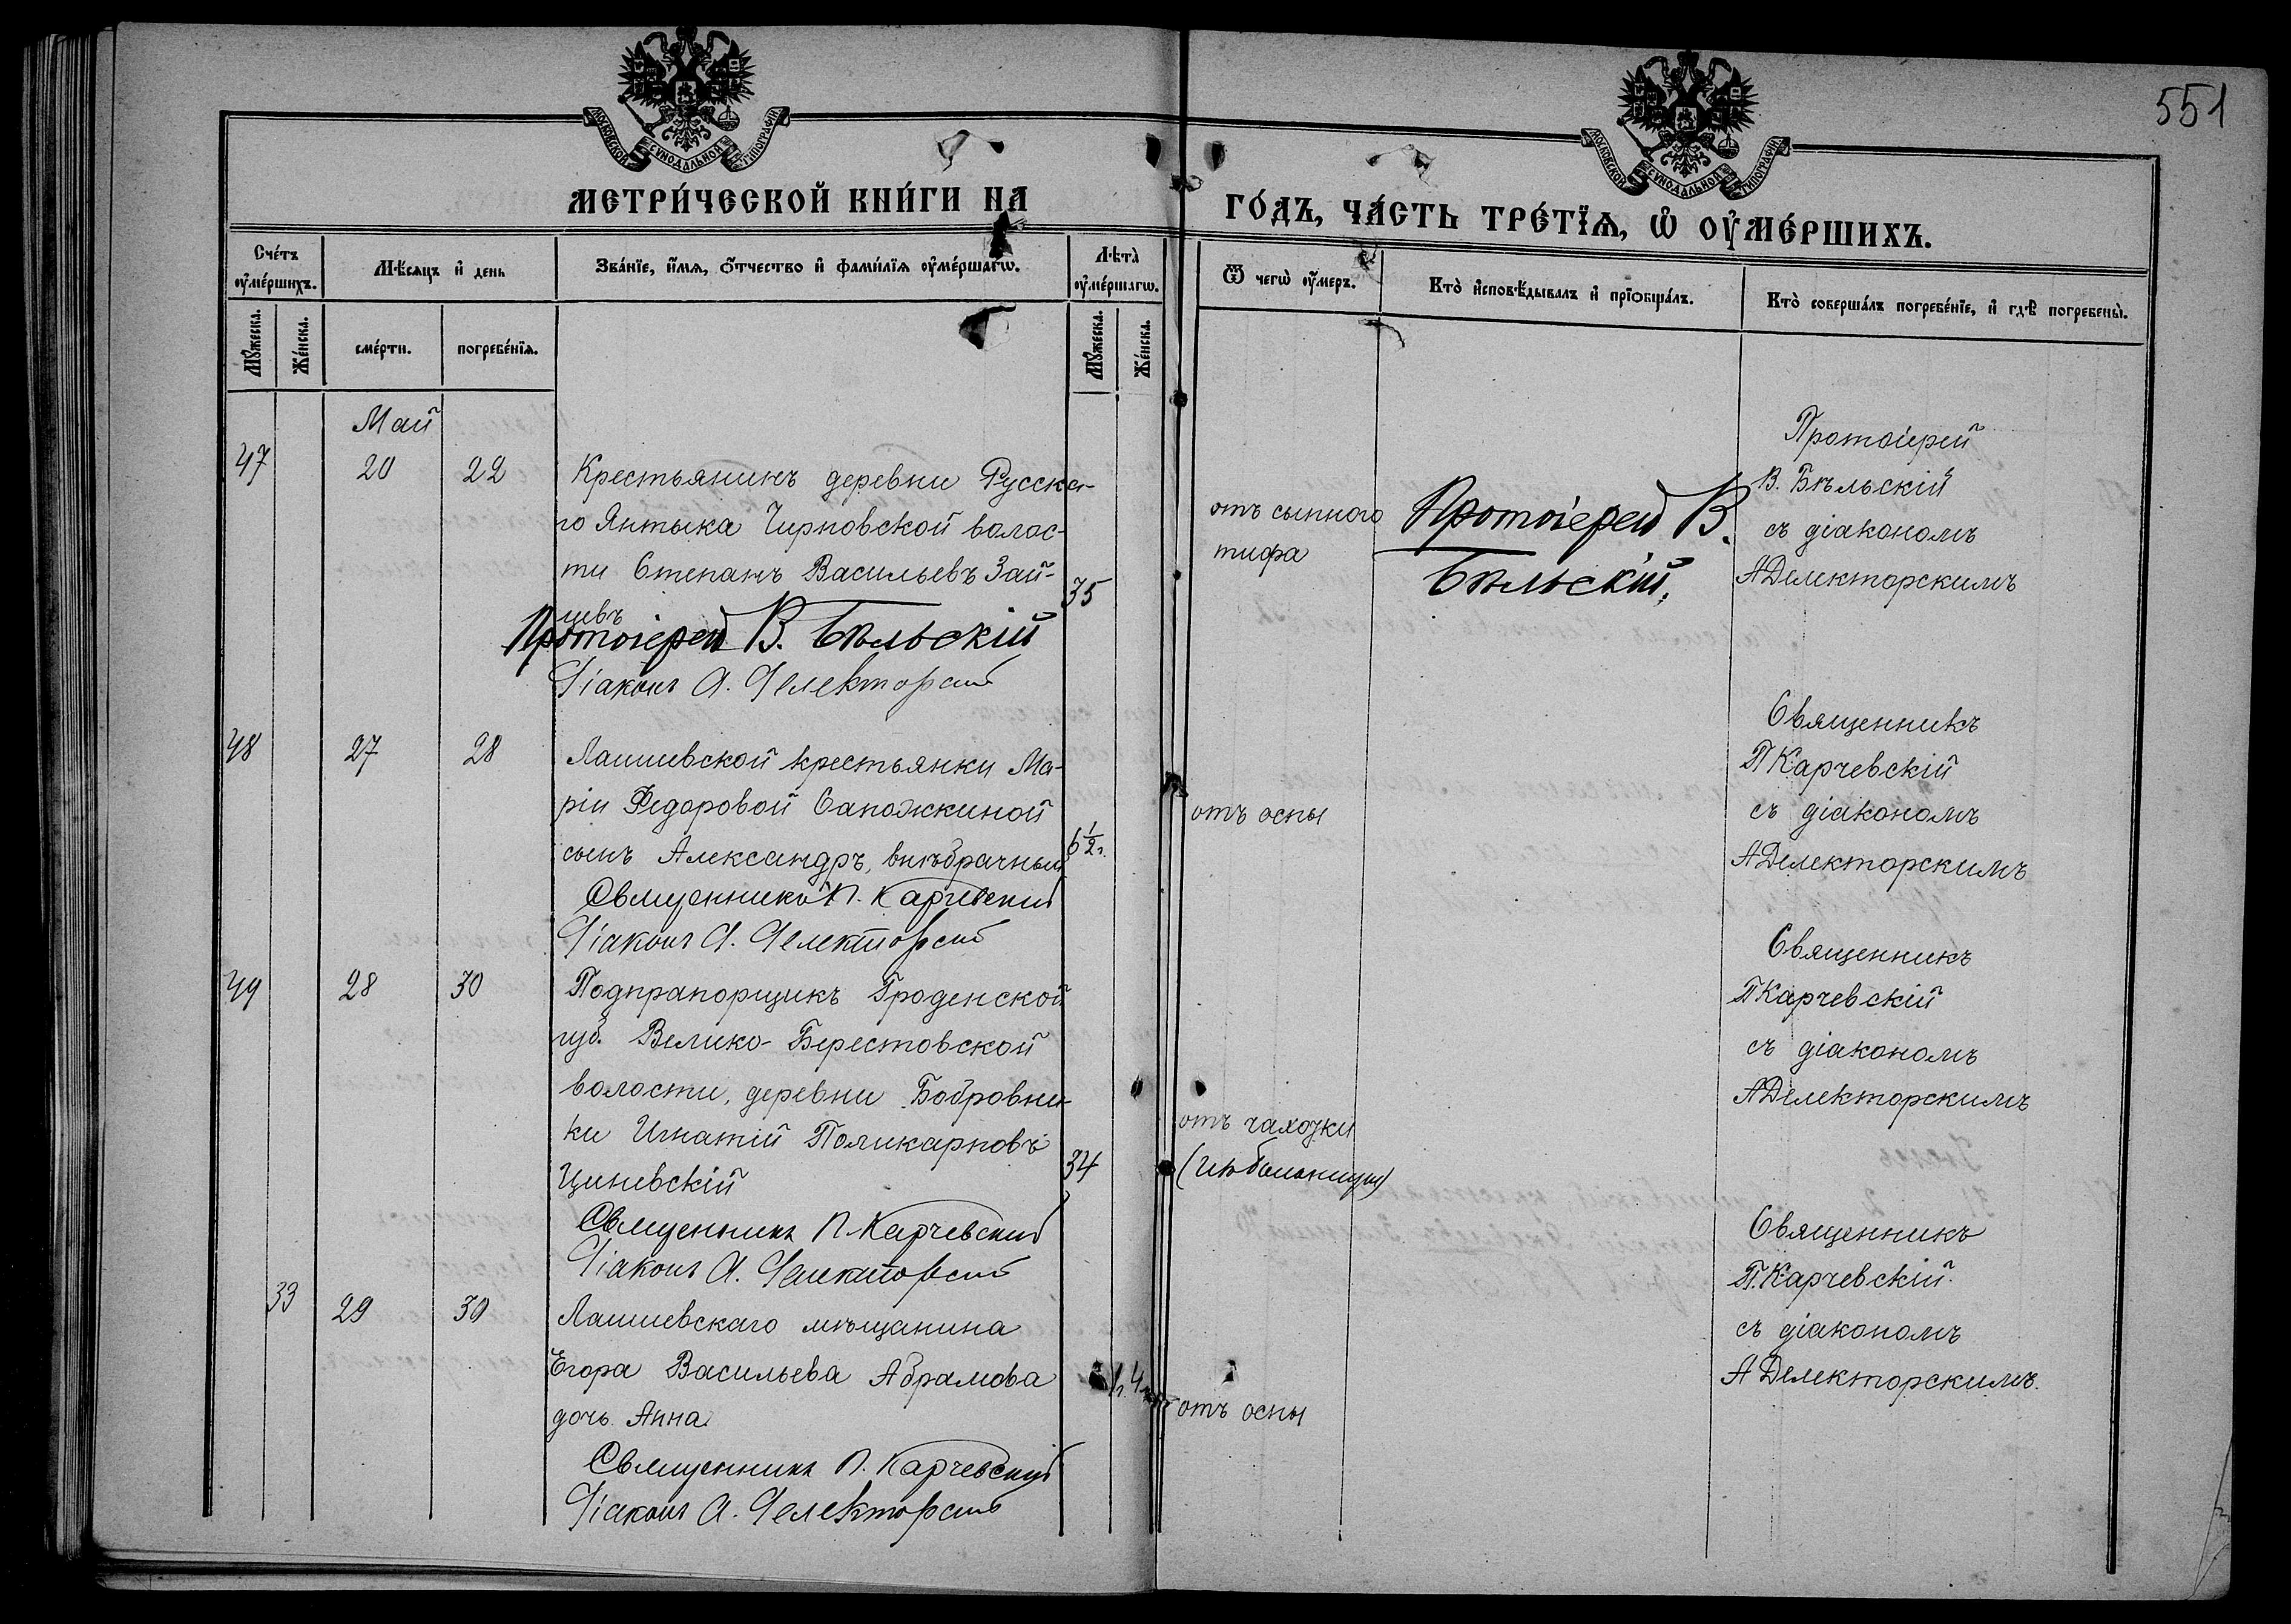 551
МОСКОВСКОЙ СѴНОДАЛЬНОЙ ТИПОГРАФІИ
МОСКОВСКОЙ СѴНОДАЛЬНОЙ ТИПОГРАФІИ
МЕТРИ́ЧЕСКОЙ КНИ́ГИ НА ГО́ДЪ, ЧА́СТЬ ТРЕ́ТЇѦ, Ѡ҆ ОУ҆МЕ́РШИХЪ.
Сче́тъ оу҆ме́ршихъ.
Мѣ́сяцъ и҆ день
Зва́нїе, и҆́мѧ, ѻ҆́тчество и҆ фами́лїѧ оу҆ме́ршагѡ.
Лѣта̀ оу҆ме́ршагѡ.
Ѿ чегѡ̀ оу҆́меръ.
Кто̀ и҆сповѣ́дывалъ и҆ прїѡбща́лъ.
Кто̀ соверша́лъ погребе́нїе, и҆ гдѣ̀ погребены̀.
Мꙋ́жеска.
Же́нска.
сме́рти.
погребе́нїѧ.
Мꙋ́жеска.
Же́нска.
Май
47 20 22 Крестьянинъ деревни Русска-
го Янтыка Чирповской волос-
ти Степанъ Васильевъ Зай-
цевъ 35
Протоіерей В. Бѣльскій
Діаконъ А. Делекторскій
отъ сыпного
тифа
Протоіерей В.
Бѣльскій.
Протоіерей
В. Бѣльскій
съ діакономъ
А Делекторскимъ
48 27 28 Лаишевской крестьянки Ма-
ріи Федоровой Сапожкиной
сынъ Александръ, внѣбрачный 6 1/2 г.
Священникъ П. Карчевскій
Діаконъ А. Делекторскій
отъ оспы
Священникъ
П Карчевскій
съ діакономъ
А Делекторскимъ
49 28 30 Подпрапорщикъ Гроденской
губ. Велико-Берестовской
волости, деревни Бобровни-
ки Игнатій Поликарповъ
Циневскій 34
Священникъ П. Карчевскій
Діаконъ А. Делекторскій
отъ чахотки
Священникъ
П Карчевскій
съ діакономъ
А Делекторскимъ
33 29 30 Лаишевскаго мѣщанина
Егора Васильева Абрамова
дочь Анна
Священникъ П. Карчевскій
Діаконъ А. Делекторскій
отъ оспы
Священникъ
П. Карчевскій
съ діакономъ
А Делекторскимъ.